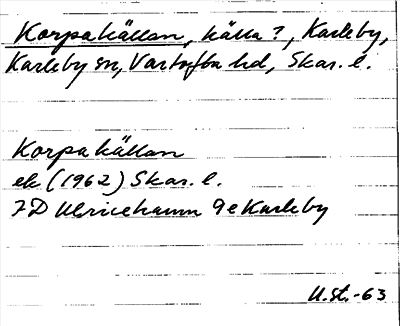 Korpakällan, källa?, Karleby,
Karleby sn, Vartofta hd, Skar. l.
Korpakällan
ek (1962) Skar. l.
7D Ulricehamn 9e Karleby
U.St.-63